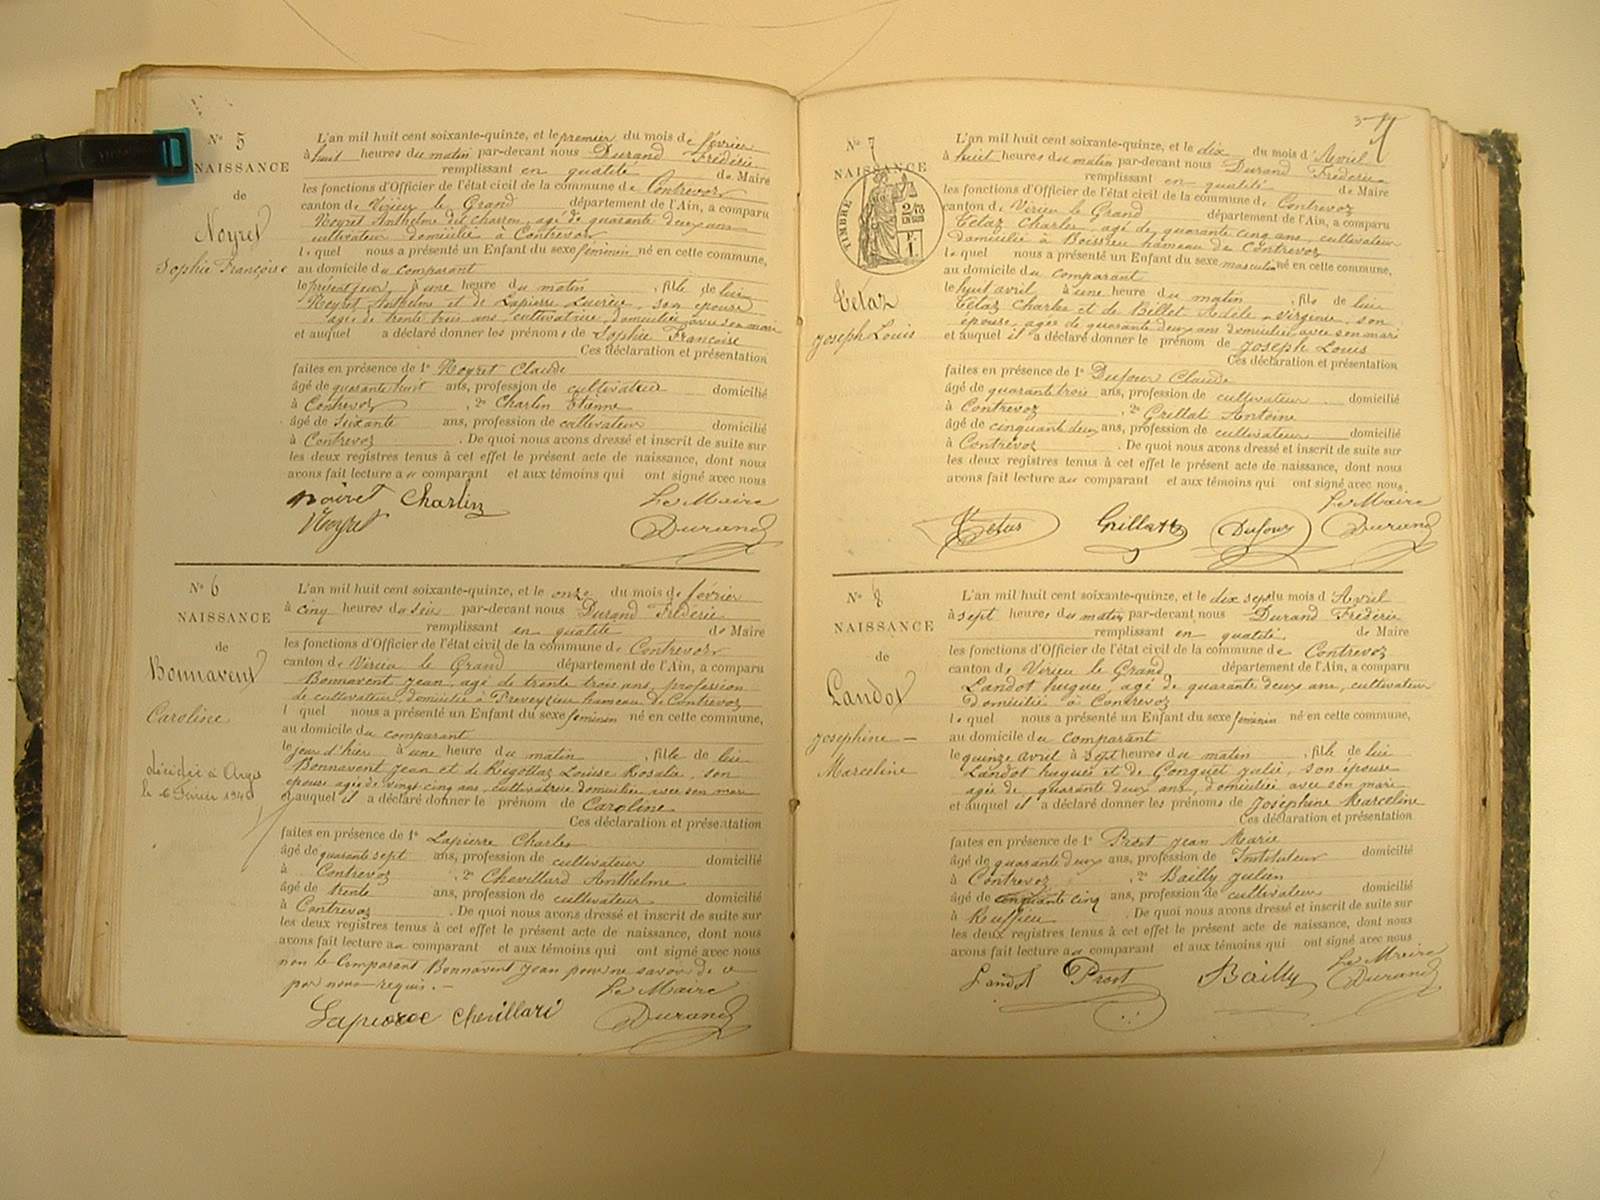 N° 5
NAISSANCE
de
Noyret
Sophie Françoise
L'an mil huit cent soixante-quinze, et le premier du mois de février
à huit heures du matin par-devant nous Durand Fréderic
remplissant en qualité de Maire
les fonctions d'Officier de l'état civil de la commune de Contrevoz
canton de Virieu le Grand département de l'Ain, a comparu
Noyret Anthelme dit charron, agé de quarante deux ans
cultivateur domicilié à Contrevoz
lequel nous a présenté un Enfant du sexe féminin né en cette commune,
au domicile du comparant
le présent jour, à une heure du matin, fille de lui
Noyret Anthelme et de Lapierre son épouse
agée de trente trois ans, cultivatrice domiciliée avec son mari
et auquel a déclaré donner les prénoms de Sophie Françoise
Ces déclaration et présentation
faites en présence de 1° Noyret Claude
âgé de quarante huit ans, profession de cultivateur domicilié
à Contrevoz, 2° Charlin Etienne
âgé de soixante ans, profession de cultivateur domicilié
à Contrevoz. De quoi nous avons dressé et inscrit de suite sur
les deux registres tenus à cet effet le présent acte de naissance, dont nous
avons fait lecture au comparant et aux témoins qui ont signé avec nous
Charlin Le Maire
Noyret Durand
N° 6
NAISSANCE
de
Bonnavent
Caroline
décédée à Argis
le 6 Février 1940
L'an mil huit cent soixante-quinze, et le onze du mois de février
à cinq heures du soir par-devant nous Durand Fréderic
remplissant en qualité de Maire
les fonctions d'Officier de l'état civil de la commune de Contrevoz
canton de Virieu le Grand département de l'Ain, a comparu
Bonnavent Jean, agé de trente trois ans, profession
de cultivateur, domicilié à Preveyzieu hameau de Contrevoz
lequel nous a présenté un Enfant du sexe féminin né en cette commune,
au domicile du comparant
le jour d'hier à une heure du matin, fille de lui
Bonnavent Jean et de Rigottaz Louise Rosalie, son
épouse agée de vingt cinq ans, cultivatrice domiciliée avec son mari
et auquel il a déclaré donner le prénom de Caroline
Ces déclaration et présentation
faites en présence de 1° Lapierre Charles
âgé de quarante sept ans, profession de cultivateur domicilié
à Contrevoz, 2° Chevillard Anthelme
âgé de trente ans, profession de cultivateur domicilié
à Contrevoz. De quoi nous avons dressé et inscrit de suite sur
les deux registres tenus à cet effet le présent acte de naissance, dont nous
avons fait lecture au comparant et aux témoins qui ont signé avec nous
non le Comparant Bonnavent Jean pour ne savoir de ce
par nous requis. Le Maire
Lapierre Chevillard Durand
N° 7
NAISSANCE
TIMBRE
Tetaz
Joseph Louis
L'an mil huit cent soixante-quinze, et le dix du mois d'Avril
à huit heures du matin par-devant nous Durand Fréderic
remplissant en qualité de Maire
les fonctions d'Officier de l'état civil de la commune de Contrevoz
canton de Virieu le Grand département de l'Ain, a comparu
Tetaz Charles, agé de quarante cinq ans, cultivateur
domicilié à Boissieu hameau de Contrevoz
lequel nous a présenté un Enfant du sexe masculin né en cette commune,
au domicile du comparant
le huit avril à une heure du matin, fils de lui
Tetaz Charles et de Billet Adèle Virginie, son
épouse, agée de quarante deux ans domiciliée avec son mari
et auquel il a déclaré donner le prénom de Joseph Louis
Ces déclaration et présentation
faites en présence de 1° Dufour Claude
âgé de quarante trois ans, profession de cultivateur domicilié
à Contrevoz, 2° Grillat Antoine
âgé de cinquante deux ans, profession de cultivateur domicilié
à Contrevoz. De quoi nous avons dressé et inscrit de suite sur
les deux registres tenus à cet effet le présent acte de naissance, dont nous
avons fait lecture au comparant et aux témoins qui ont signé avec nous
Le Maire
Tetas Grillat Dufour Durand
N° 8
NAISSANCE
de
Landot
Josephine
Marceline
L'an mil huit cent soixante-quinze, et le dix sept du mois d'Avril
à sept heures du matin par-devant nous Durand Fréderic
remplissant en qualité de Maire
les fonctions d'Officier de l'état civil de la commune de Contrevoz
canton de Virieu le Grand département de l'Ain, a comparu
Landot hugues, agé de quarante deux ans, cultivateur
domicilié à Contrevoz
lequel nous a présenté un Enfant du sexe féminin né en cette commune,
au domicile du comparant
le quinze avril à sept heures du matin, fille de lui
Landot hugues et de Gonguet Julie, son épouse
agée de quarante deux ans, domiciliée avec son mari
et auquel il a déclaré donner les prénoms de Joséphine Marceline
Ces déclaration et présentation
faites en présence de 1° Prost Jean Marie
âgé de quarante deux ans, profession de Instituteur domicilié
à Contrevoz, 2° Bailly Julien
âgé de cinquante cinq ans, profession de cultivateur domicilié
à Ruffieu. De quoi nous avons dressé et inscrit de suite sur
les deux registres tenus à cet effet le présent acte de naissance, dont nous
avons fait lecture au comparant et aux témoins qui ont signé avec nous
Le Maire
Landot Prost Bailly Durand